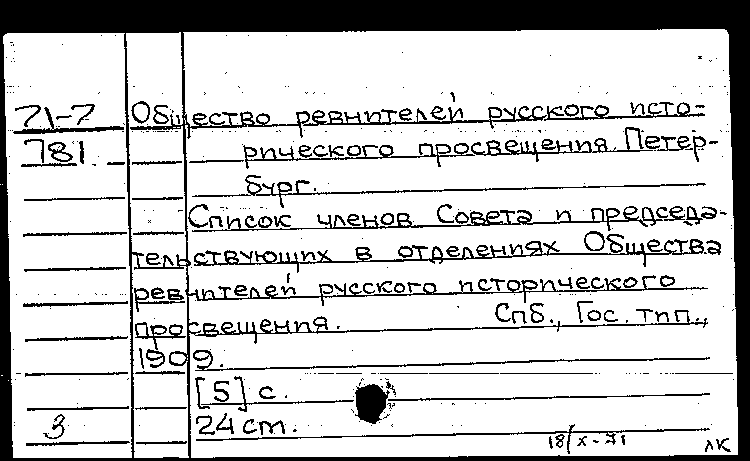 71-7 Общество ревнителей русского исто-
781 рического просвещения. Петер-
бург.
Список членов Совета и председа-
тельствующих в отделениях Общества
ревнителей русского исторического
просвещения. Спб., Гос. тип.,
1909.
[5] с.
3 24 cm.
18/X-71 ЛК